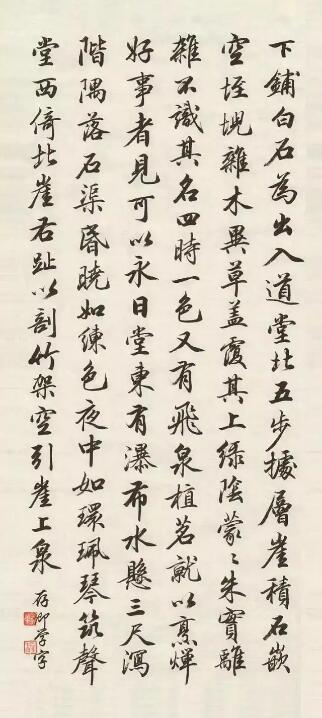 下鋪白石為出入道堂北五步據層崖積石嵌
空垤堄雜木異草蓋覆其上綠陰蒙〻朱實離
離不識其名四時一色又有飛泉植茗就以烹燀
好事者見可以永日堂東有瀑布水懸三尺瀉
階隅落石渠昏曉如練色夜中如環珮琴筑聲
堂西倚北崖右趾以剖竹架空引崖上泉